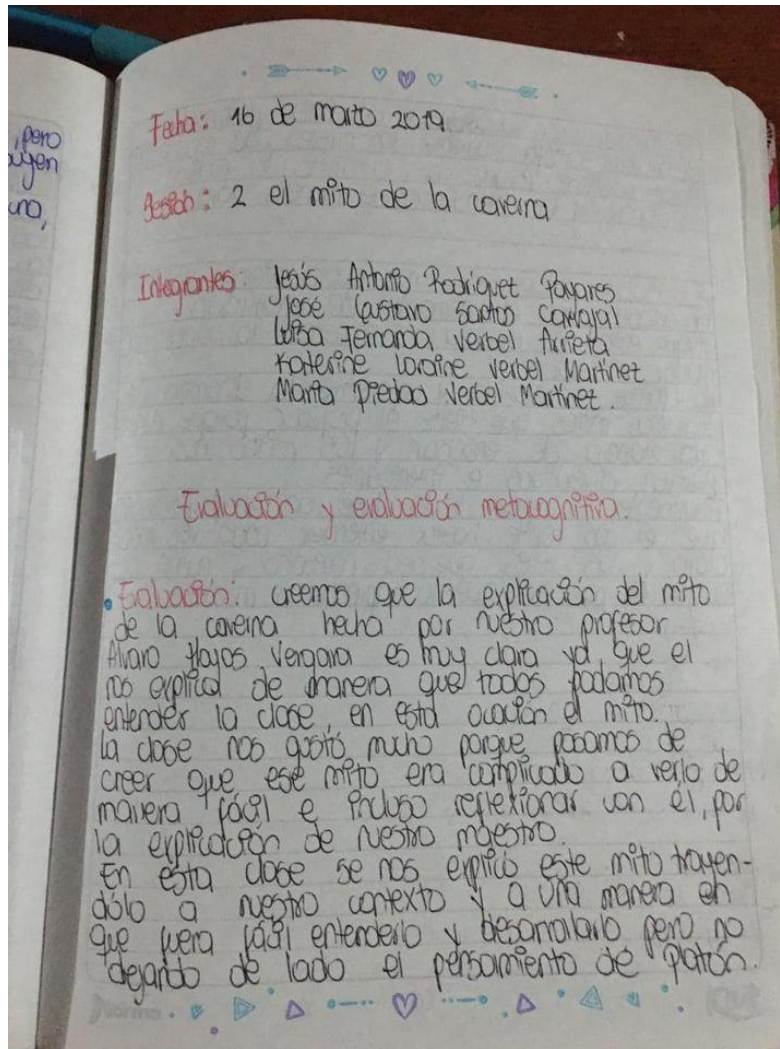 , pero
uyen
una,
Fecha: 16 de marzo 2019
Sesión: 2 el mito de la caverna
Integrantes: Jesús Antonio Rodriguez Payares
José Gustavo Santos Carvajal
Luisa Fernanda Verbel Arrieta
Katerine Loraine Verbel Martínez
María Piedad Verbel Martínez.
Evaluación y evaluación metacognitiva.
• Evaluación: creemos que la explicación del mito
de la caverna hecha por nuestro profesor
Alvaro Hayos Vergara es muy clara ya que el
nos explica de manera que todos podamos
entender la clase, en esta ocación el mito.
La clase nos gustó mucho porque pasamos de
creer que ese mito era complicado a verlo de
manera fácil e incluso reflexionar con él, por
la explicación de nuestro maestro.
En esta clase se nos explicó este mito trayen-
dólo a nuestro contexto y a una manera en
que fuera fácil entenderlo y desarrollarlo pero no
dejando de lado el pensamiento de platón.
Norma